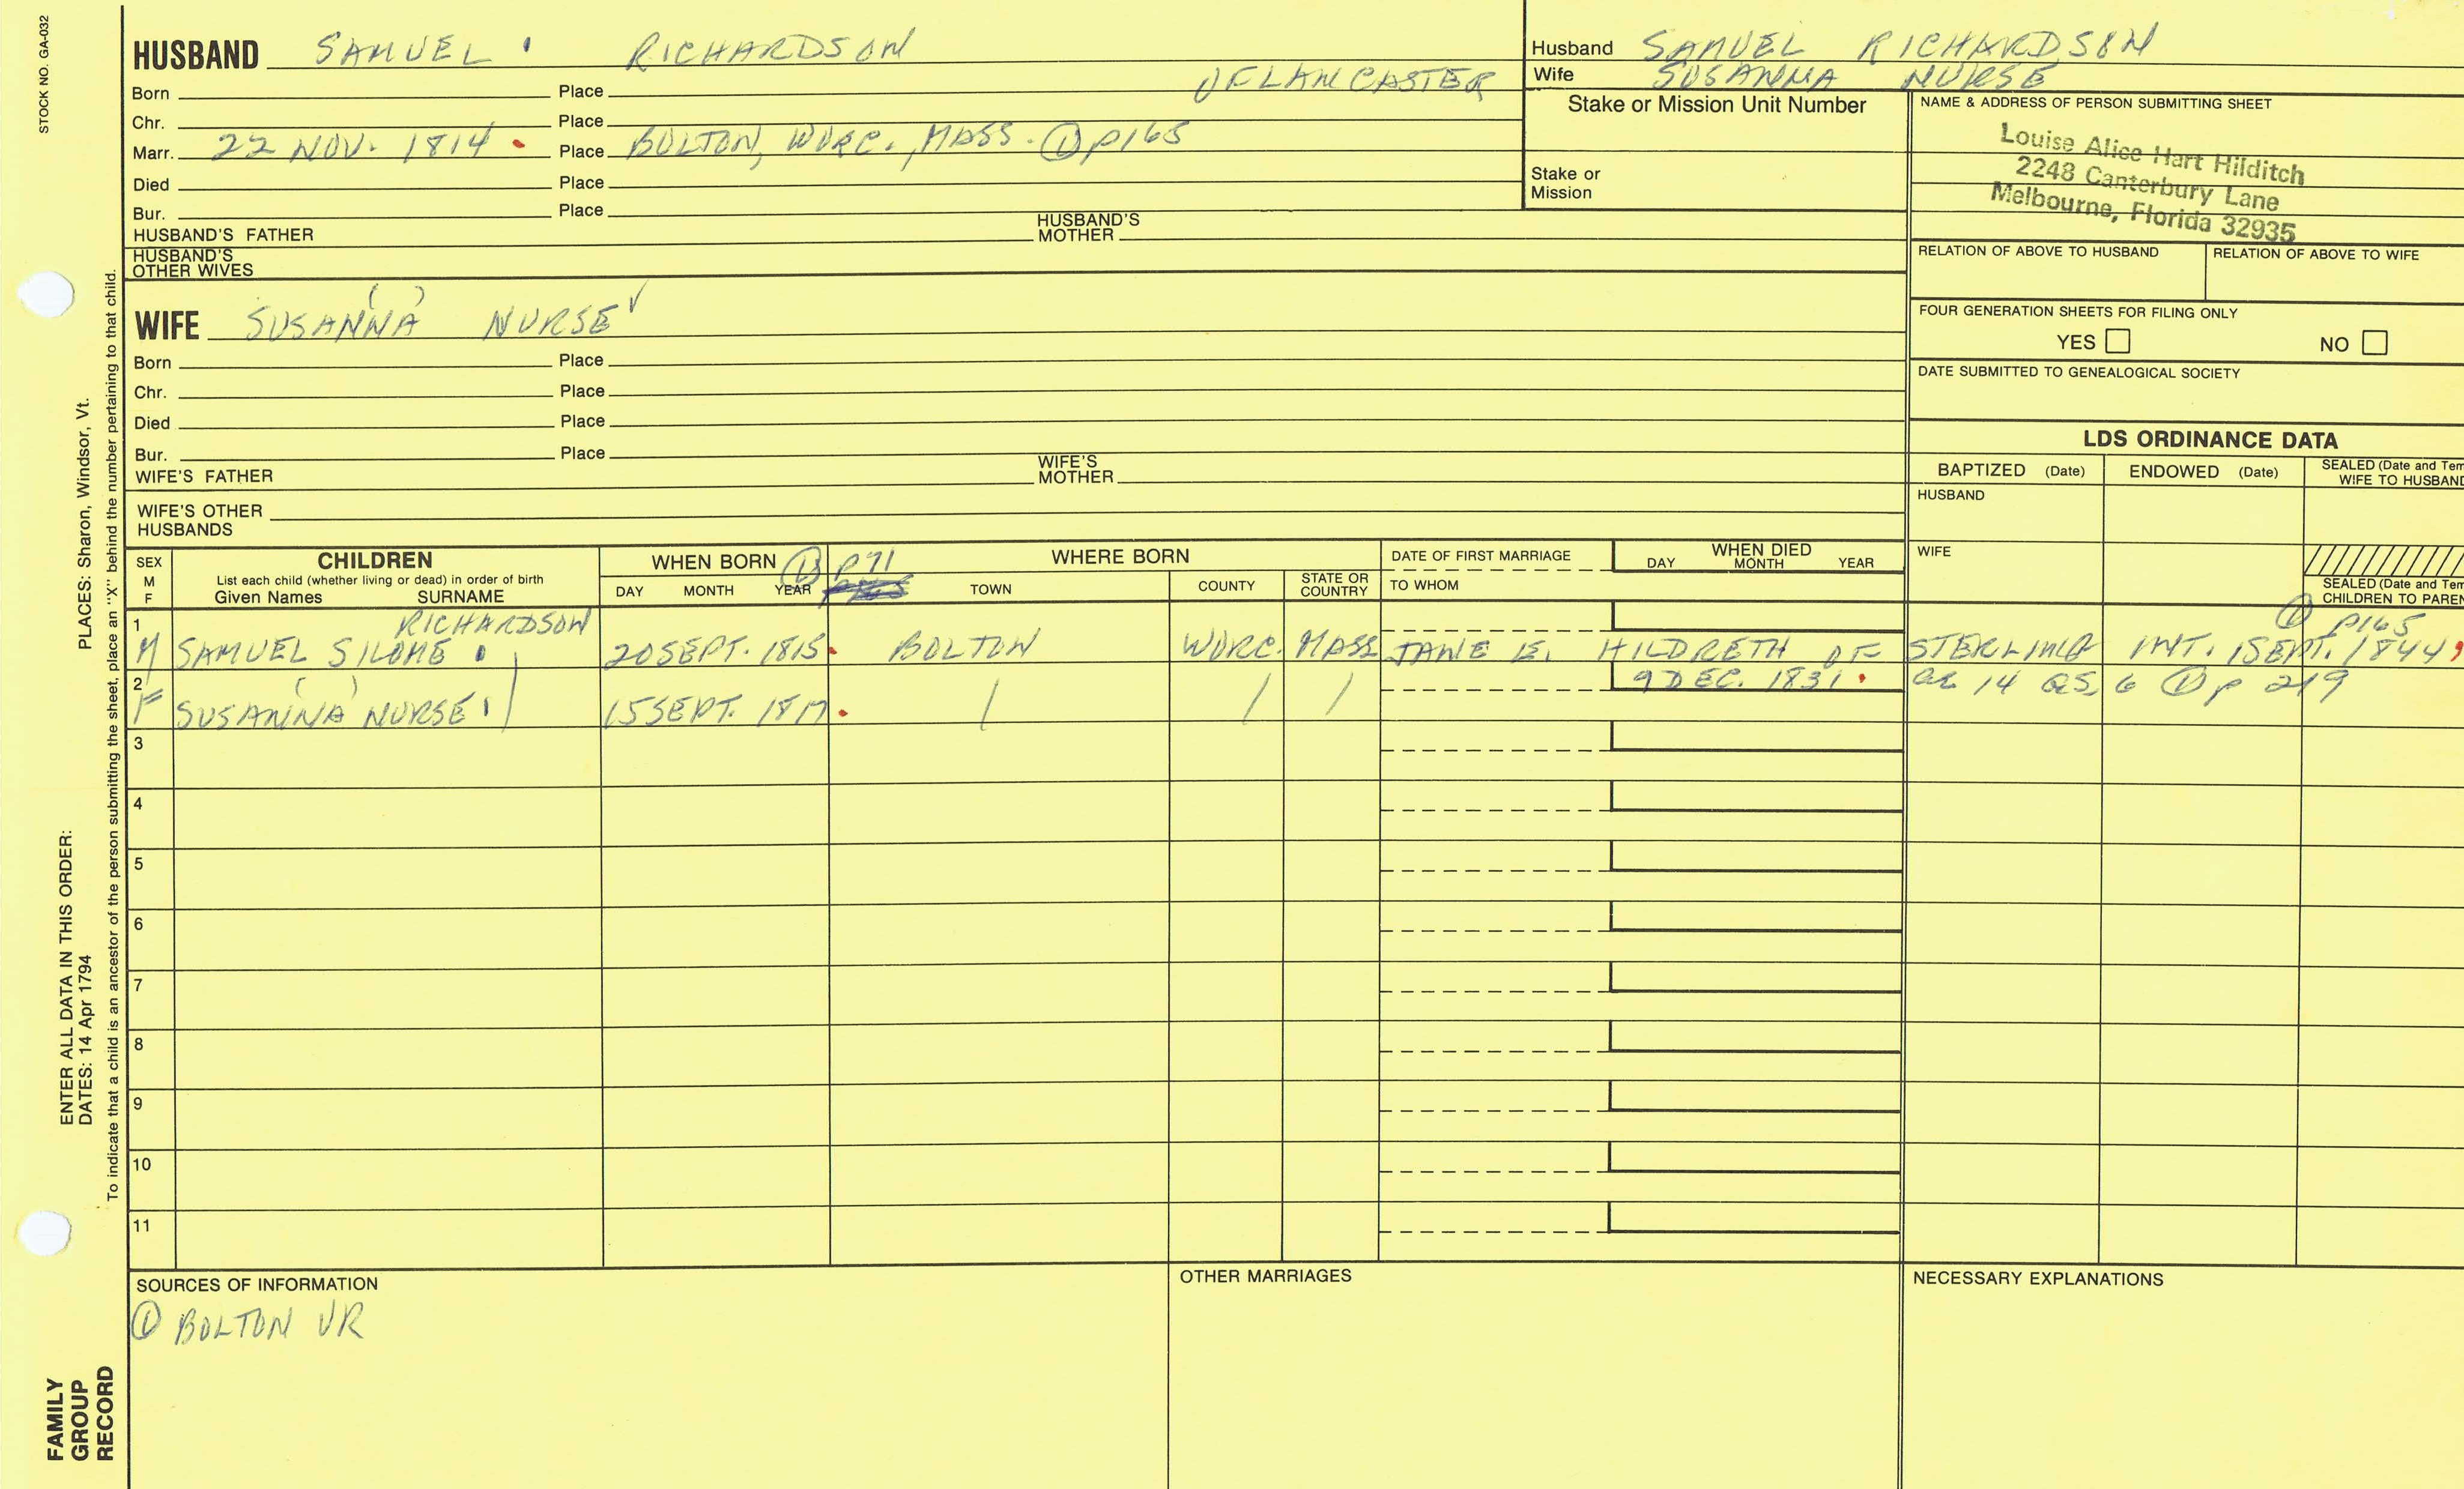 STOCK NO. GA-032
HUSBAND SAMUEL RICHARDSON
OF LANCASTER
Born Place
Chr. Place
Marr. 22 NOV. 1814 Place BOLTON, WORC., MASS. ① p165
Died Place
Bur. Place
HUSBAND'S FATHER HUSBAND'S MOTHER
HUSBAND'S OTHER WIVES
Husband SAMUEL RICHARDSON
Wife SUSANNA NURSE
Stake or Mission Unit Number
Stake or Mission
NAME & ADDRESS OF PERSON SUBMITTING SHEET
Louise Alice Hart Hilditch
2248 Canterbury Lane
Melbourne, Florida 32935
RELATION OF ABOVE TO HUSBAND RELATION OF ABOVE TO WIFE
FOUR GENERATION SHEETS FOR FILING ONLY
YES NO
DATE SUBMITTED TO GENEALOGICAL SOCIETY
( )
WIFE SUSANNA NURSE √
Born Place
Chr. Place
Died Place
Bur. Place
WIFE'S FATHER WIFE'S MOTHER
WIFE'S OTHER HUSBANDS
LDS ORDINANCE DATA
BAPTIZED (Date) ENDOWED (Date) SEALED (Date and Tem
WIFE TO HUSBAND
HUSBAND
WIFE
SEALED (Date and Tem
CHILDREN TO PAREN
SEX
M
F
CHILDREN
List each child (whether living or dead) in order of birth
Given Names SURNAME
WHEN BORN ① p71
DAY MONTH YEAR
WHERE BORN
TOWN COUNTY STATE OR COUNTRY
DATE OF FIRST MARRIAGE
TO WHOM
WHEN DIED
DAY MONTH YEAR
1 RICHARDSON ① p165
M SAMUEL SILOME 20 SEPT. 1815 BOLTON WORC. MASS JANE E. HILDRETH OF STERLING INT. 1 SEPT. 1844
2 ( ) 9 DEC. 1831 ae 14 GS, 6 ① p 219
F SUSANNA NURSE 15 SEPT. 1817 / / /
3
4
5
6
7
8
9
10
11
SOURCES OF INFORMATION
① BOLTON VR
OTHER MARRIAGES
NECESSARY EXPLANATIONS
ENTER ALL DATA IN THIS ORDER:
DATES: 14 Apr 1794 PLACES: Sharon, Windsor, Vt.
To indicate that a child is an ancestor of the person submitting the sheet, place an "X" behind the number pertaining to that child.
FAMILY
GROUP
RECORD